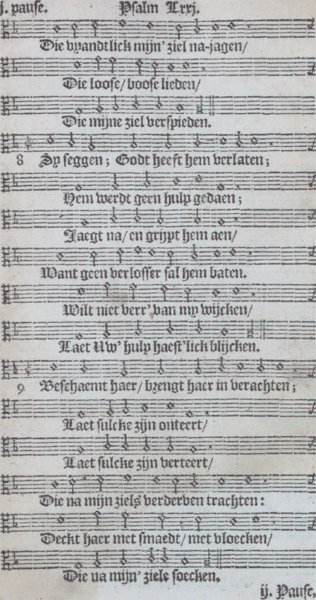 j. pause. Psalm Lxxj.
Die vyandtlick mijn' ziel na-jagen/
Die loose/ boose lieden/
Die mijne ziel verspieden.
8 Sy seggen; Godt heeft hem verlaten;
Hem werdt geen hulp gedaen;
Jaegt na/ en grijpt hem aen/
Want geen verlosser sal hem baten.
Wilt niet verr' van my wijcken/
Laet Uw' hulp haest'lick blijcken.
9 Beschaemt haer/ brengt haer in verachten;
Laet sulcke zijn onteert/
Laet sulcke zijn verteert/
Die na mijn ziels verderven trachten:
Deckt haer met smaedt/ met vloecken/
Die na mijn' ziele soecken.
ij. Pause.